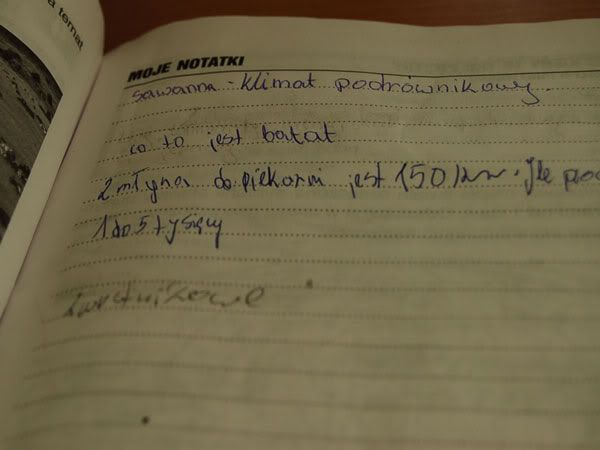 a temat
MOJE NOTATKI
sawanna - klimat podrównikowy.
co to jest batat
z młyna do piekarni jest 150 km. Ile
1 do 5 tysięcy